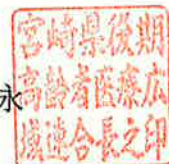 永
宮崎県後期
高齢者医療広
域連合長之印